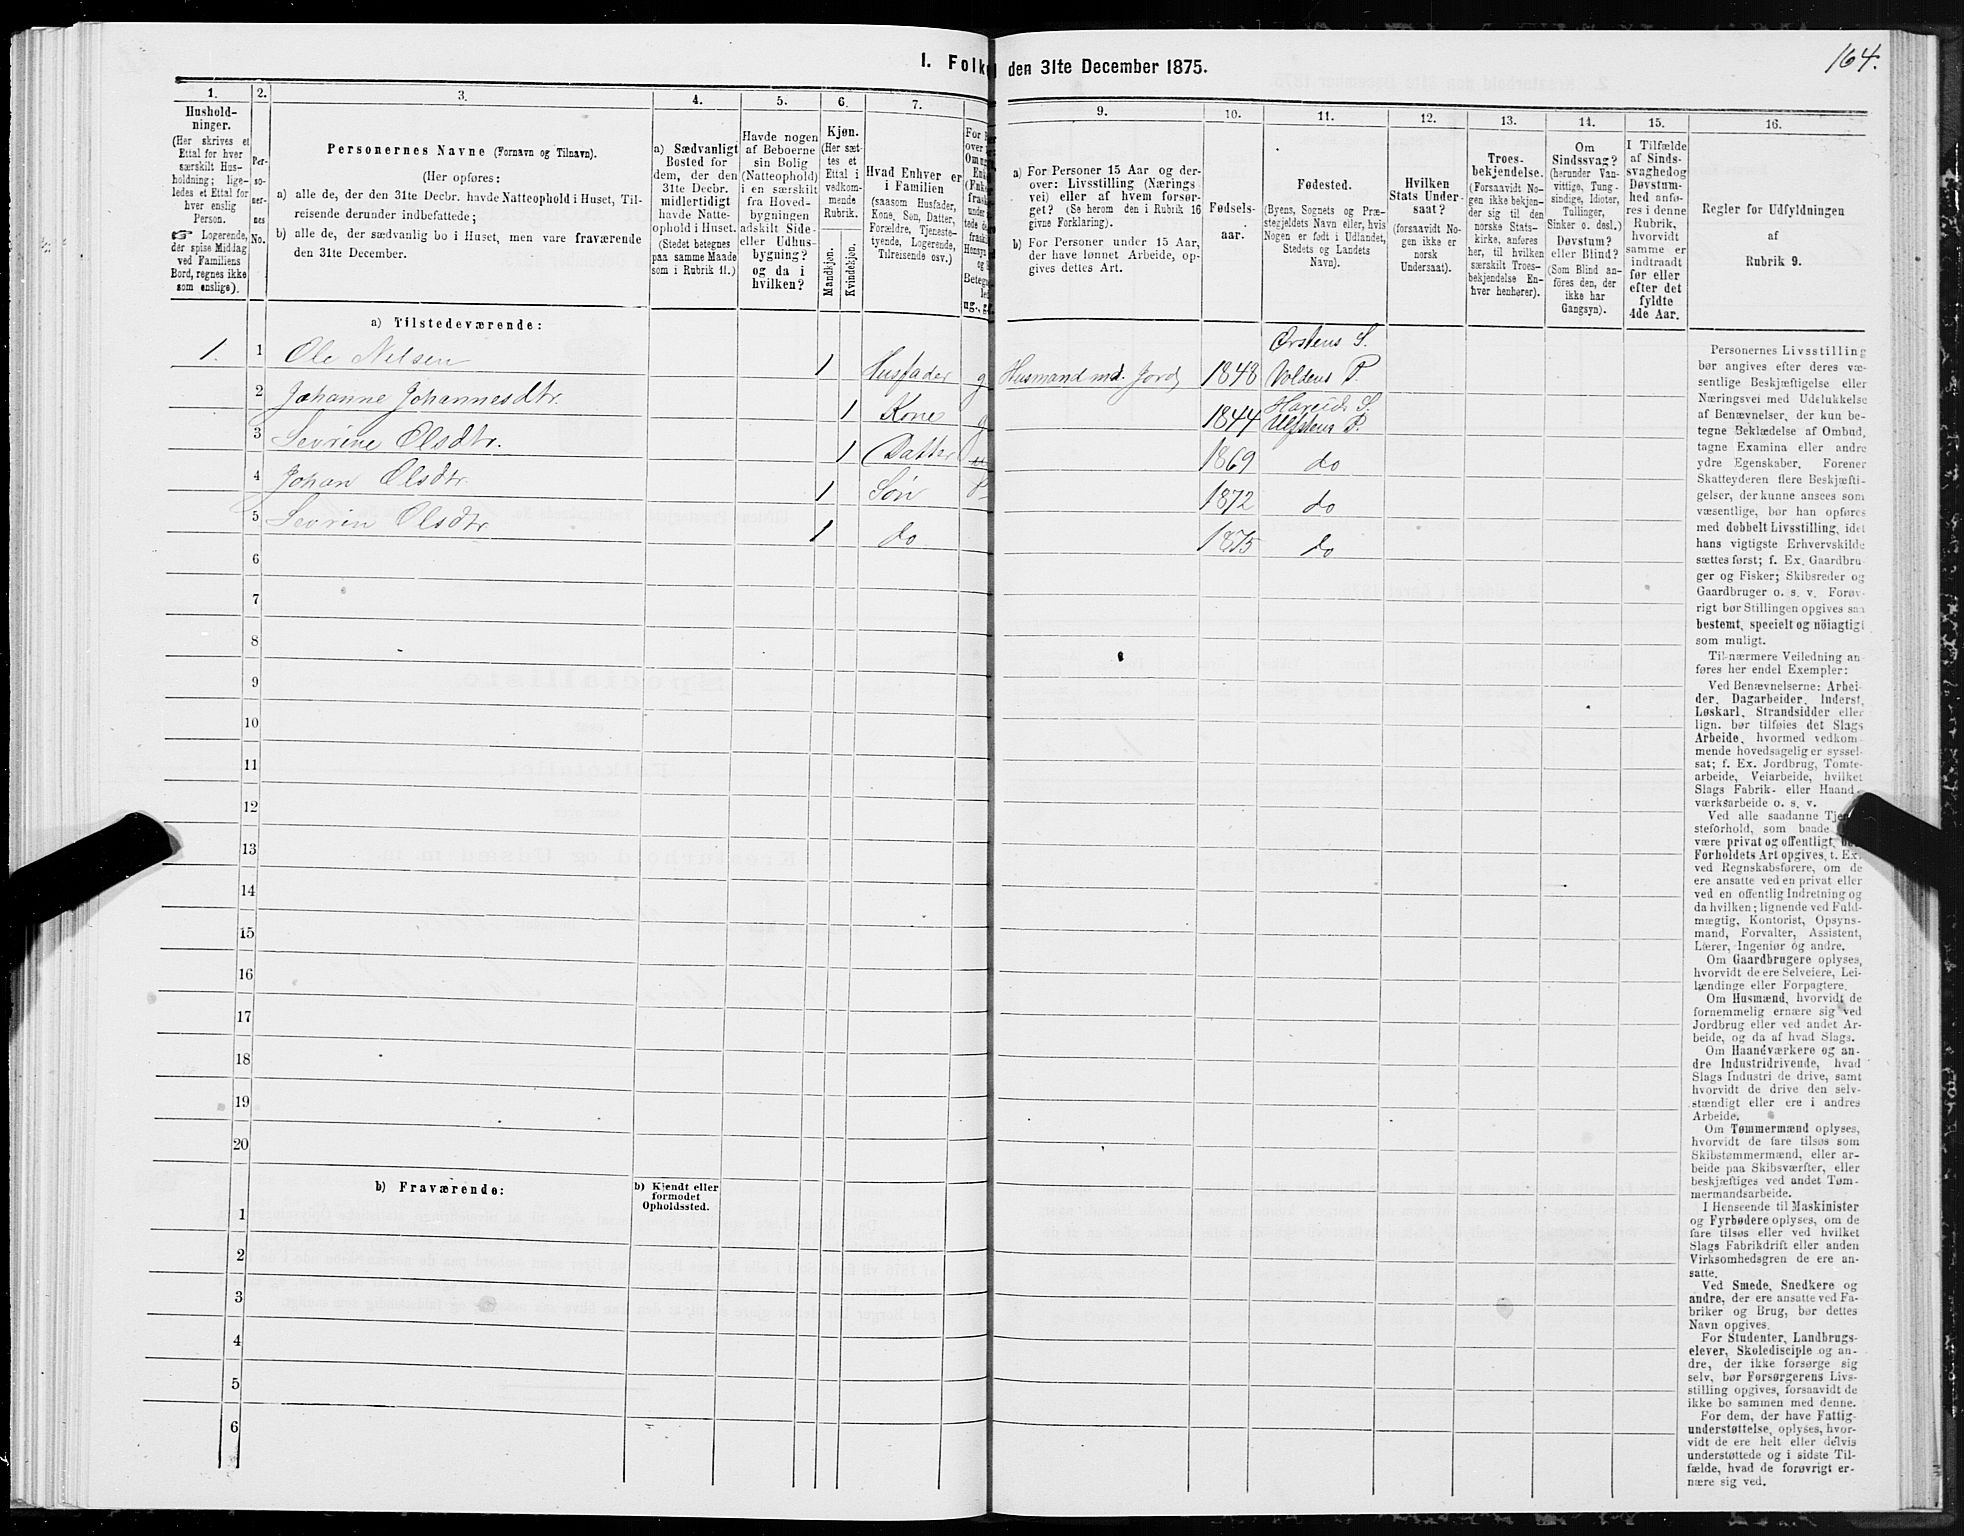 164.
1. Folke den 31te December 1875.
1.
Hushold-
ninger.
(Her skrives et
Ettal for hver
særskilt Hus-
holdning; lige-
ledes et Ettal for
hver enslig
Person.
☞ Logerende,
der spise Middag
ved Familiens
Bord, regnes ikke
som enslige).
2.
Per-
so-
ner-
nes
No.
3.
Personernes Navne (Fornavn og Tilnavn).
(Her opføres:
a) alle de, der den 31te Decbr. havde Natteophold i Huset, Til-
reisende derunder indbefattede;
b) alle de, der sædvanlig bo i Huset, men vare fraværende
den 31te December.
4.
a) Sædvanligt
Bosted for
dem, der den
31te Decbr.
midlertidigt
havde Natte-
ophold i Huset.
(Stedet betegnes
paa samme Maade
som i Rubrik 11.)
5.
Havde nogen
af Beboerne
sin Bolig
(Natteophold)
i en særskilt
fra Hoved-
bygningen
adskilt Side-
eller Udhus-
bygning?
og da i
hvilken?
6.
Kjøn.
(Her sæt-
tes et
Ettal i
vedkom-
mende
Rubrik.
Mandkjøn.
Kvindekjøn.
7.
Hvad Enhver er
i Familien
(saasom Husfader,
Kone, Søn, Datter,
Forældre, Tjeneste-
tyende, Logerende,
Tilreisende osv.)
9.
a) For Personer 15 Aar og der-
over: Livsstilling (Nærings
vei) eller af hvem forsør-
get? (Se herom den i Rubrik 16
givne Forklaring).
b) For Personer under 15 Aar,
der have lønnet Arbeide, op-
gives dettes Art.
10.
Fødsels-
aar.
11.
Fødested.
(Byens, Sognets og Præ-
stegjeldets Navn eller, hvis
Nogen er født i Udlandet,
Stedets og Landets
Navn).
12.
Hvilken
Stats Under-
saat?
(forsaavidt No-
gen ikke er
norsk
Undersaat).
13.
Troes-
bekjendelse.
(Forsaavidt No-
gen ikke bekjen-
der sig til den
norske Stats-
kirke, anføres
her, til hvilken
særskilt Troes-
bekjendelse En-
hver henhører).
14.
Om
Sindssvag?
(herunder Van-
vittige, Tung-
sindige, Idioter,
Tullinger,
Sinker o. desl.)
Døvstum?
eller Blind?
(Som Blind an-
føres den, der
ikke har
Gangsyn).
15.
I Tilfælde
af Sinds-
svaghed og
Døvstum-
hed anfø-
res i denne
Rubrik,
hvorvidt
samme er
indtraadt
før eller
efter det
fyldte
4de Aar.
16.
Regler for Udfyldningen
af
Rubrik 9.
a) Tilstedeværende:
1. 1 Ole Nilsen 1 Husfader g Husmand md. Jord, 1848 Ørstens S. Voldens P.
2 Johanne Johannesdtr. 1 Kone g 1844 Hareids S. Ulfstens P.
3 Sevrine Olsdtr. 1 Datter 1869 do
4 Johan Olsdtr. 1 Søn 1872 do
5 Sevrin Olsdtr. 1 do 1875 do
6
7
8
9
10
11
12
13
14
15
16
17
18
19
20
b) Fraværende:
b) Kjendt eller
formodet
Opholdssted.
1
2
3
4
5
6
Personernes Livsstilling
bør angives efter deres væ-
sentlige Beskjæftigelse eller
Næringsvei med Udelukkelse
af Benævnelser, der kun be-
tegne Beklædelse af Ombud,
tagne Examina eller andre
ydre Egenskaber. Forener
Skatteyderen flere Beskjæfti-
gelser, der kunne ansees som
væsentlige, bør han opføres
med dobbelt Livsstilling, idet
hans vigtigste Erhvervskilde
sættes først; f. Ex. Gaardbru-
ger og Fisker; Skibsreder og
Gaardbruger o. s. v. Forøv-
rigt bør Stillingen opgives saa
bestemt, specielt og nöiagtigt
som muligt.
Til nærmere Veiledning an-
føres her endel Exempler:
Ved Benævnelserne: Arbei-
der, Dagarbeider, Inderst,
Løskarl, Strandsidder eller
lign. bør tilføies det Slags
Arbeide, hvormed vedkom-
mende hovedsagelig er syssel-
sat; f. Ex. Jordbrug, Tomte-
arbeide, Veiarbeide, hvilket
Slags Fabrik- eller Haand-
værksarbeide o. s. v.
Ved alle saadanne Tjen-
steforhold, som baade
være privat og offentligt,
Forholdets Art opgives, t. Ex.
ved Regnskabsførere, om de
ere ansatte ved en privat eller
ved en offentlig Indretning og
da hvilken; lignende ved Fuld-
mægtig, Kontorist, Opsyns-
mand, Forvalter, Assistent,
Lærer, Ingeniør og andre.
Om Gaardbrugere oplyses,
hvorvidt de ere Selveiere, Lei-
lændinge eller Forpagtere.
Om Husmænd, hvorvidt de
fornemmelig ernære sig ved
Jordbrug eller ved andet Ar-
beide, og da af hvad Slags.
Om Haandværkere og an-
dre Industridrivende, hvad
Slags Industri de drive, samt
hvorvidt de drive den selv-
stændigt eller ere i andres
Arbeide.
Om Tømmermænd oplyses,
hvorvidt de fare tilsøs som
Skibstømmermænd, eller ar-
beide paa Skibsværfter, eller
beskjæftiges ved andet Tøm-
mermandsarbeide.
I Henseende til Maskinister
og Fyrbødere oplyses, om de
fare tilsøs eller ved hvilket
Slags Fabrikdrift eller anden
Virksomhedsgren de ere an-
satte.
Ved Smede, Snedkere og
andre, der ere ansatte ved Fa-
briker og Brug, bør dettes
Navn opgives.
For Studenter, Landbrugs-
elever, Skoledisciple og an-
dre, der ikke forsørge sig
selv, bør Forsørgerens Livs-
stilling opgives, forsaavidt de
ikke bo sammen med denne.
For dem, der have Fattig-
understøttelse, oplyses, hvor-
vidt de ere helt eller delvis
understøttede og i sidste Til-
fælde, hvad de forøvrigt er-
nære sig ved.